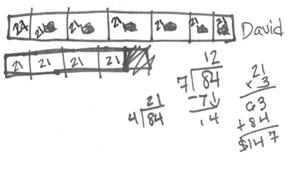 21 21 21 21 21 21 21 David
21 21 21 21
12
7 84
-7↓
14
21
4 84
21
x 3
63
+84
$147